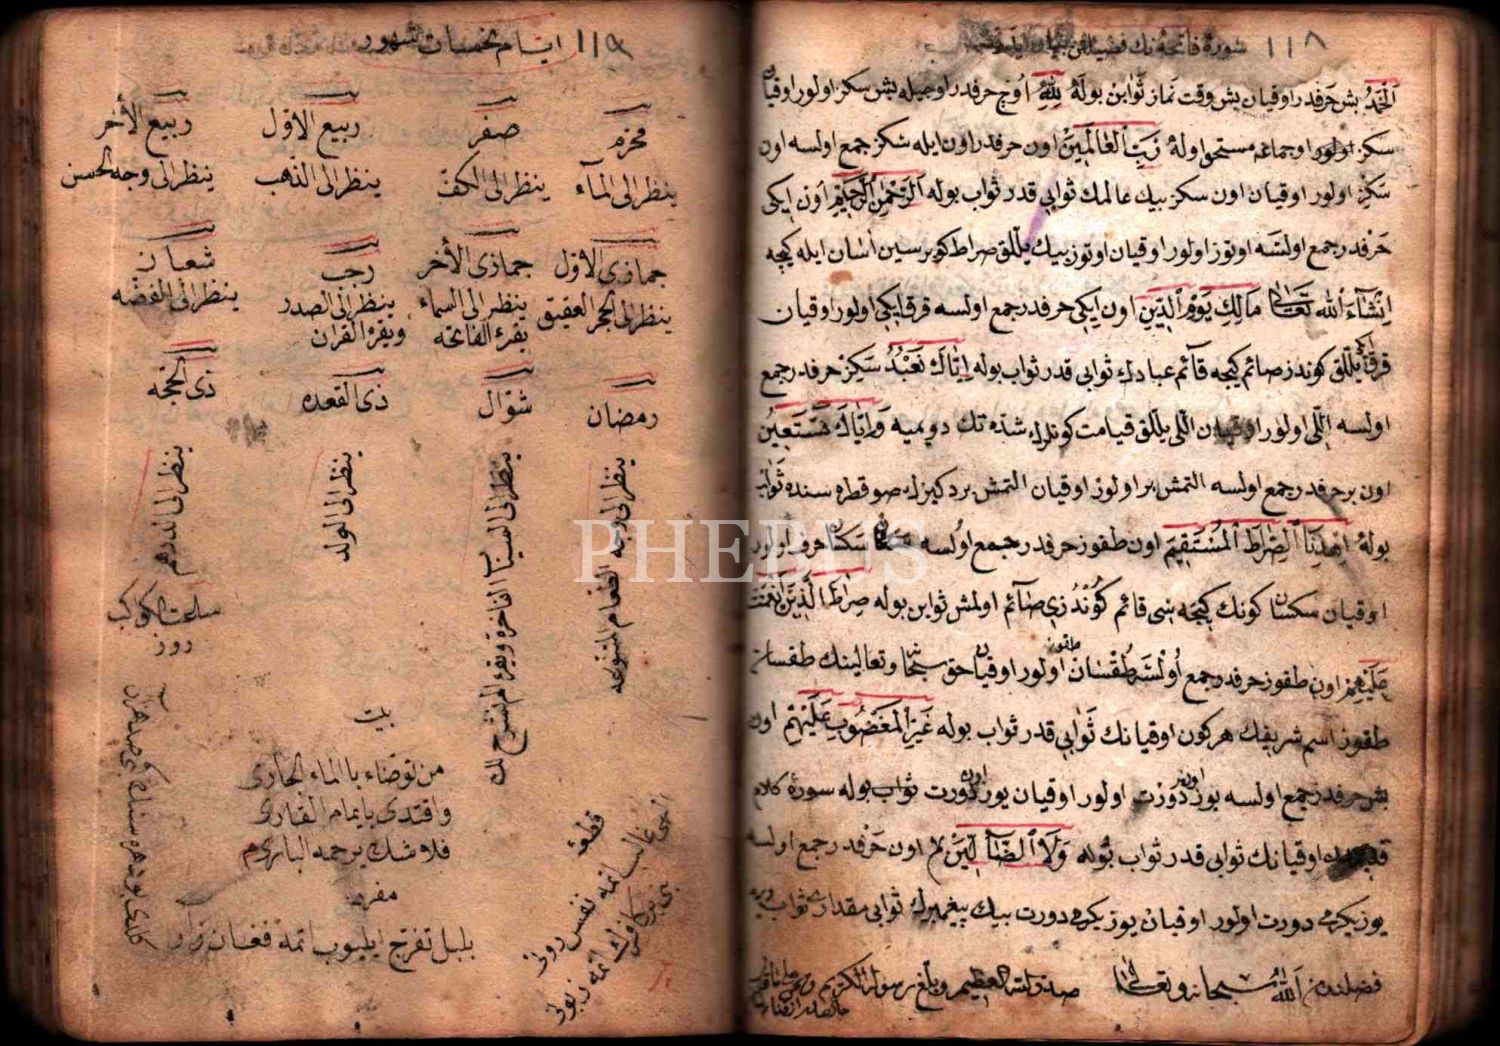 ١١٨ سورۀ فاتحه نك
اَلْحَمْدُ بش حرفدر اوقيان بش وقت نماز ثوابن بوله لِلّٰهِ اوچ حرفدر اوچيله بش سكز اولور اوقيان
سكز اولور اوجماغه مستحق اوله رَبِّ الْعَالَمِينَ اون حرفدر اون ايله سكز جمع اولسه اون
سكز اولور اوقيان اون سكز بيك عالمك ثوابى قدر ثواب بوله اَلرَّحْمٰنِ الرَّحِيمِ اون ايكى
حرفدر جمع اولسه اوتوز اولور اوقيان اوتوز بيك ييللق صراط كوپرسين اسان ايله كيچه
اِنْشَاءَ اللّٰه تعالى مَالِكِ يَوْمِ الدِّينِ اون ايكى حرفدر جمع اولسه قرق ايكى اولور اوقيان
قرق ايكى ييللق كوندز صائم كيجه قائم عبادك ثوابى قدر ثواب بوله اِيَّاكَ نَعْبُدُ سكز حرفدر جمع
اولسه اللى اولور اوقيان اللى ييللق قيامت كونلرك شدّتك دويميه وَاِيَّاكَ نَسْتَعِينُ
اون بر حرفدر جمع اولسه التمش بر اولور اوقيان التمش بر دكيزك صو قطره سنده ثواب
بوله اِهْدِنَا الصِّرَاطَ الْمُسْتَقِيمَ اون طقوز حرفدر جمع اولسه سكسان حرف اولور
اوقيان سكسان كونك كيجه سى قائم كُونْدُزى صائم اولمش ثوابن بوله صِرَاطَ الَّذِينَ اَنْعَمْتَ
عَلَيْهِمْ اون طقوز حرفدر جمع اُولْسَه طُقْسَان طقوز اولور اوقيان حق سبحانه وتعالينك طقسان
طقوز اسم شريفك هركون اوقيانك ثوابى قدر ثواب بوله غَيْرِ الْمَغْضُوبِ عَلَيْهِمْ اون
بش حرفدر جمع اولسه يوز اون دورت اولور اوقيان يوز اون دورت ثواب بوله سورۀ كلام
اوقيانك ثوابى قدر ثواب بوله وَلَا الضَّالِّينَ اون حرفدر جمع اولسه
يوز يكرمى دورت اولور اوقيان يوز يكرمى دورت بيك پيغمبرك ثوابى مقدارى ثواب ويره
فضلندن اللّٰه سبحانه وتعالى صدق الله العظيم وبلغ رسوله الكريم
١١٩ ايام شهور
محرم صفر ربيع الاوّل ربيع الأخر
ينظر الى المآء ينظر الى الكفّ ينظر الى الذهب ينظر الى وجه الحسن
جماذى الاوّل جماذى الأخر رجب شعبان
ينظر الى الحجر العقيق ينظر الى السماء ينظر الى الصدر ينظر الى الفضه
يقرء الفاتحه ويقرء القران
رمضان شوّال ذى القعده ذى الحجّه
ينظر الى وجه الطعام المتنوعه
ينظر الى السيف الفاخره ويقرء الم نشرح لك
ينظر الى الولد
ينظر الى الدرهم
بيت
من توضاء بالماء الجارى
واقتدى بايمام القارى
فلا شك يرحمه البارى
مفرد
بلبل تفرج ايليوب اتمه فغان زار
قطعه
PHEBUS